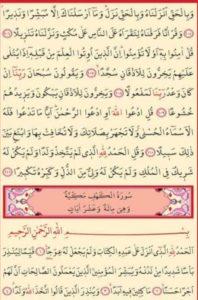 وَبِالْحَقِّ اَنْزَلْنَاهُ وَبِالْحَقِّ نَزَلَ وَمَٓا اَرْسَلْنَاكَ اِلَّا مُبَشِّرًا وَنَذٖيرًا
وَقُرْاٰنًا فَرَقْنَاهُ لِتَقْرَاَهُ عَلَى النَّاسِ عَلٰى مُكْثٍ وَنَزَّلْنَاهُ تَنْزٖيلًا
قُلْ اٰمِنُوا بِهٖٓ اَوْ لَا تُؤْمِنُوا اِنَّ الَّذٖينَ اُو۫تُوا الْعِلْمَ مِنْ قَبْلِهٖٓ اِذَا يُتْلٰى
عَلَيْهِمْ يَخِرُّونَ لِلْاَذْقَانِ سُجَّدًا وَيَقُولُونَ سُبْحَانَ رَبِّنَٓا اِنْ
كَانَ وَعْدُ رَبِّنَا لَمَفْعُولًا وَيَخِرُّونَ لِلْاَذْقَانِ يَبْكُونَ وَيَزٖيدُهُمْ
خُشُوعًا قُلِ ادْعُوا اللّٰهَ اَوِ ادْعُوا الرَّحْمٰنَ اَيًّا مَا تَدْعُوا فَلَهُ
الْاَسْمَٓاءُ الْحُسْنٰى وَلَا تَجْهَرْ بِصَلَاتِكَ وَلَا تُخَافِتْ بِهَا وَابْتَغِ بَيْنَ
ذٰلِكَ سَبٖيلًا وَقُلِ الْحَمْدُ لِلّٰهِ الَّذٖي لَمْ يَتَّخِذْ وَلَدًا وَلَمْ يَكُنْ لَهُ
شَرٖيكٌ فِي الْمُلْكِ وَلَمْ يَكُنْ لَهُ وَلِيٌّ مِنَ الذُّلِّ وَكَبِّرْهُ تَكْبٖيرًا
سُورَةُ الْكَهْفِ مَكِّيَّةٌ
وَهِيَ مِائَةٌ وَعَشْرُ اٰيَاتٍ
بِسْمِ اللّٰهِ الرَّحْمٰنِ الرَّحٖيمِ
اَلْحَمْدُ لِلّٰهِ الَّذٖٓي اَنْزَلَ عَلٰى عَبْدِهِ الْكِتَابَ وَلَمْ يَجْعَلْ لَهُ عِوَجًا قَيِّمًا لِيُنْذِرَ
بَاْسًا شَدٖيدًا مِنْ لَدُنْهُ وَيُبَشِّرَ الْمُؤْمِنٖينَ الَّذٖينَ يَعْمَلُونَ الصَّالِحَاتِ اَنَّ لَهُمْ
اَجْرًا حَسَنًا مَاكِثٖينَ فٖيهِ اَبَدًا وَيُنْذِرَ الَّذٖينَ قَالُوا اتَّخَذَ اللّٰهُ وَلَدًا